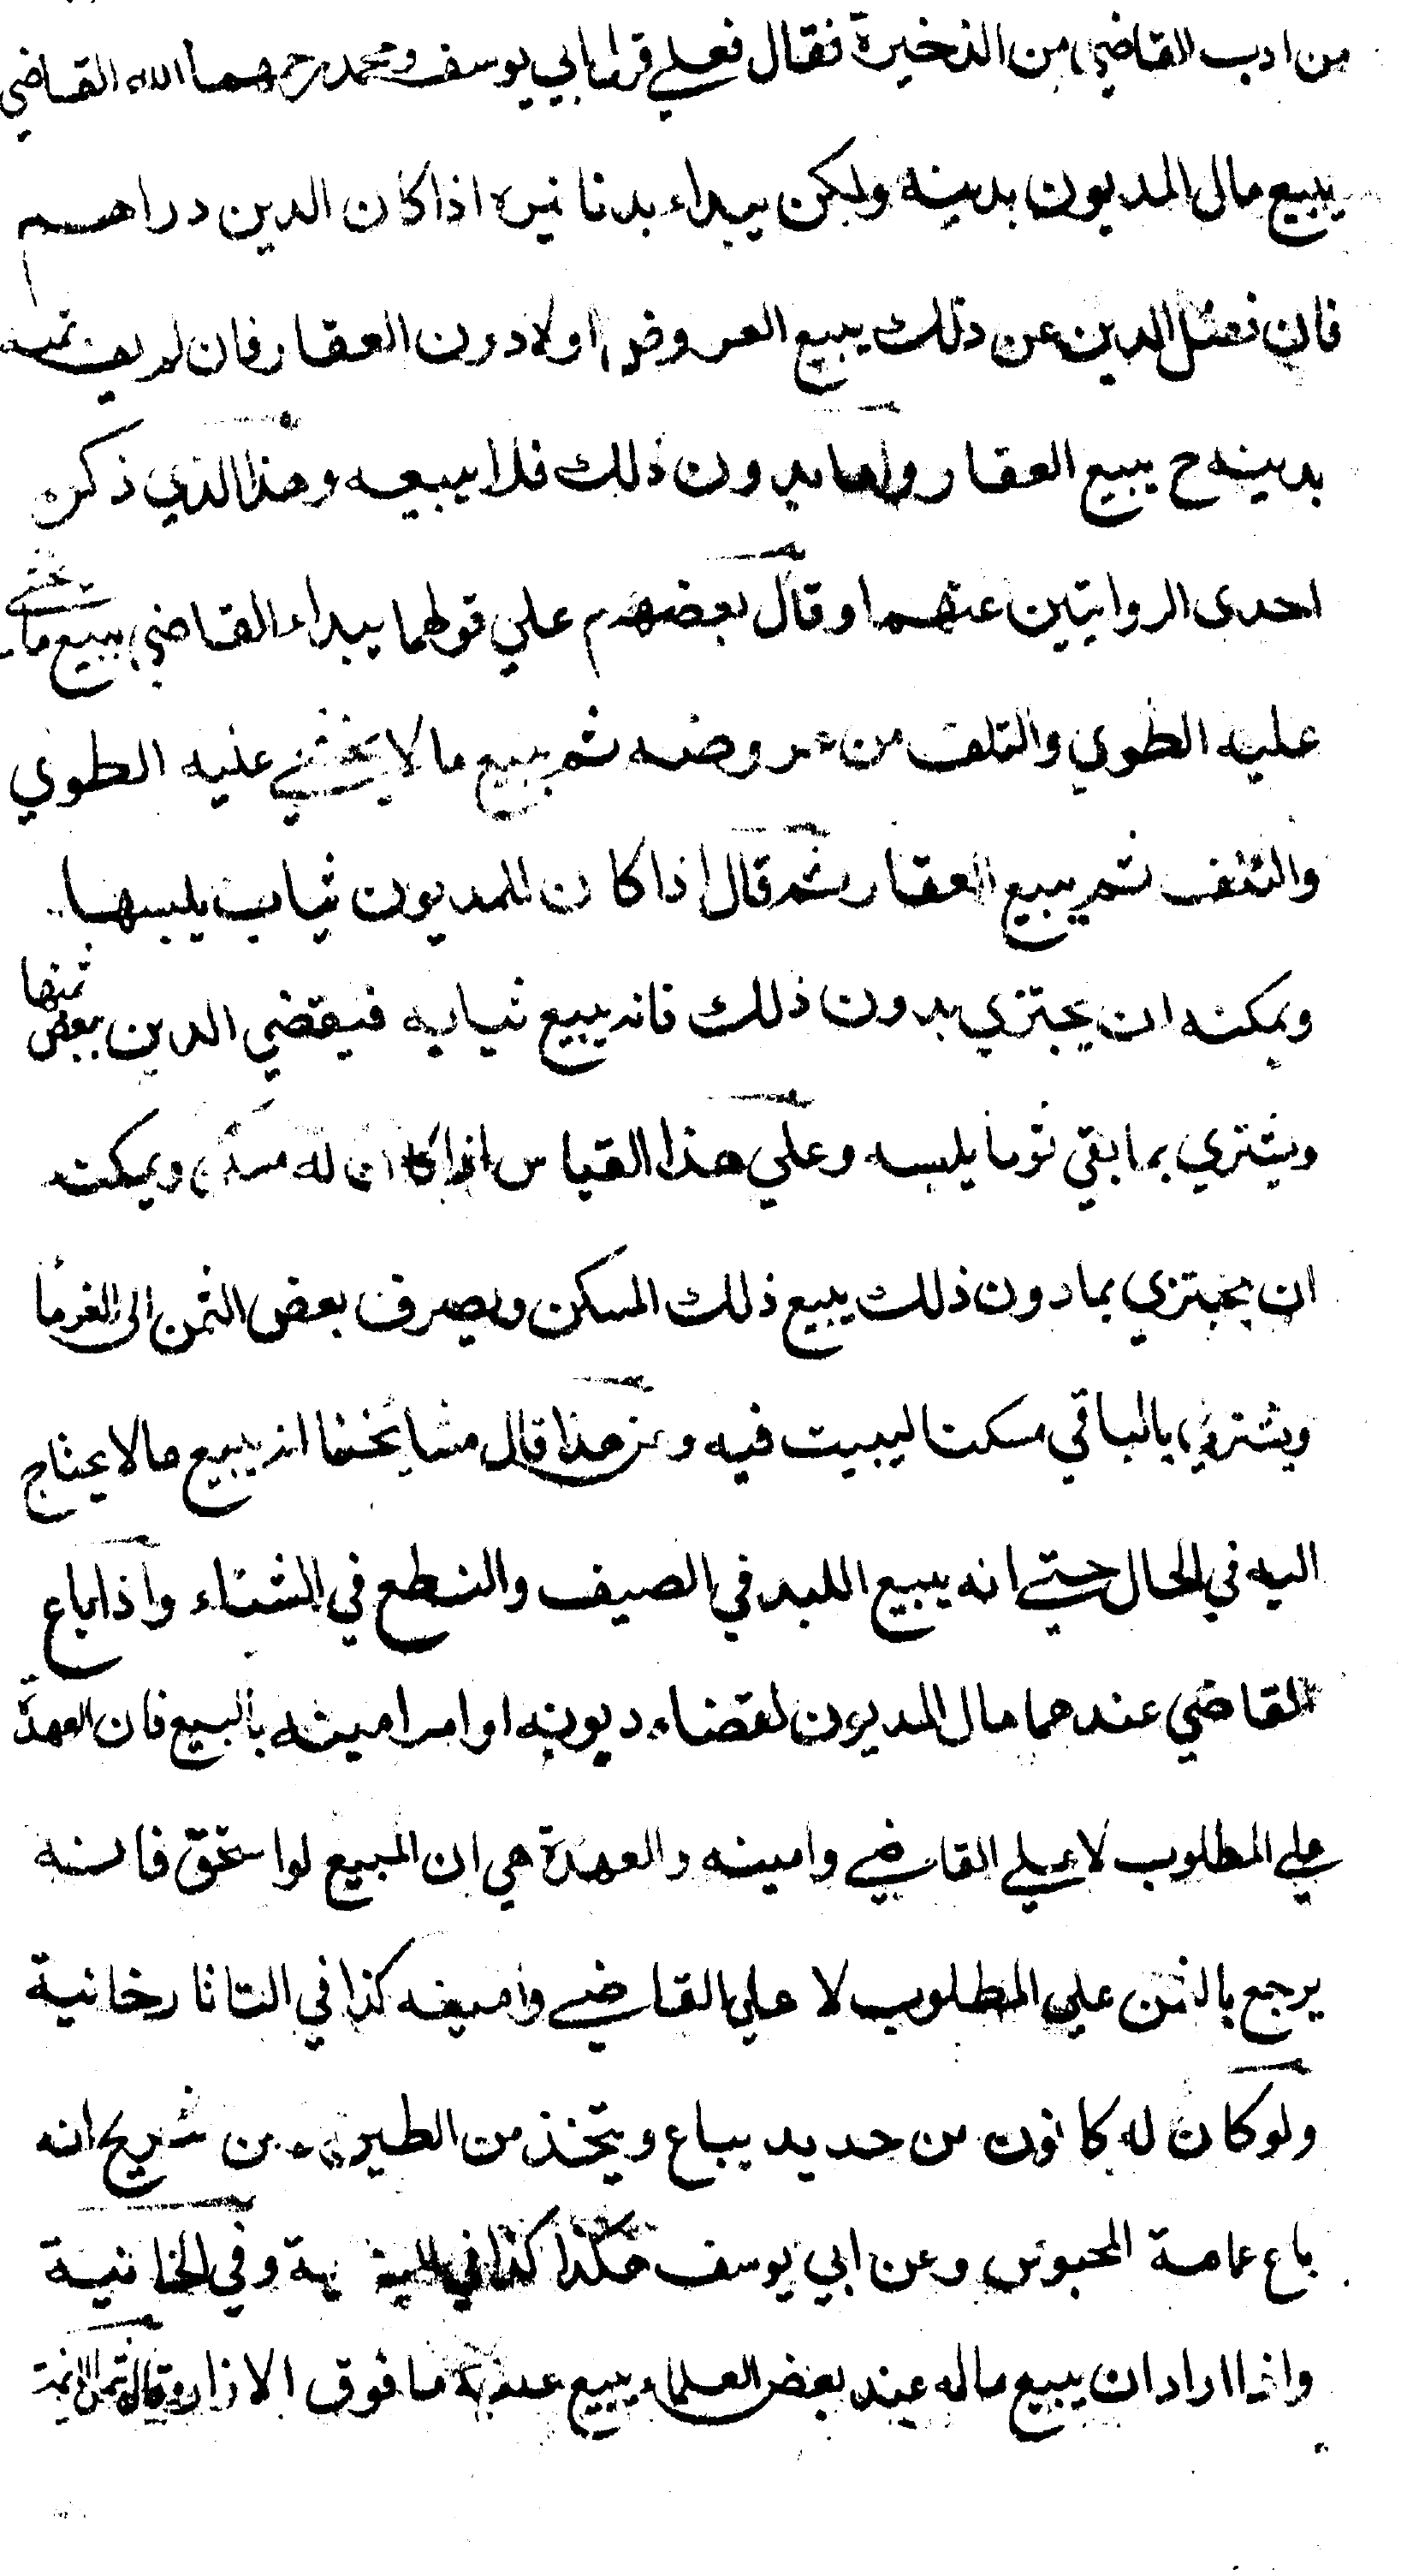 من ادب القاضي من الذخيرة فقال فعلي قول ابي يوسف ومحمد رحمهما الله القاضي
يبيع مال المديون بدينه ولكن يبداء بدنانيره اذا كان الدين دراهم
فان فضل الدين عن ذلك يبيع العروض اولا دون العقار فان لم يف ثمنه
بدينه ح يبيع العقار واما بدون ذلك فلا يبيعه وهذا الذي ذكره
احدى الروايتين عنهما وقال بعضهم علي قولهما يبداء القاضي ببيع ما يخشي
عليه الطوي والتلف من عروضه ثم يبيع ما لا يخشي عليه الطوي
والتلف ثم يبيع العقار ثم قال اذا كان للمديون ثياب يلبسها
ويمكنه ان يجتزي بدون ذلك فانه يبيع ثيابه فيقضي الدين ببعض ثمنها
ويشتري بما بقي ثوبا يلبسه وعلي هذا القياس اذا كان له مسكن ويمكنه
ان يجتزي بما دون ذلك يبيع ذلك المسكن ويصرف بعض الثمن الى الغرما
ويشتري بالباقي مسكنا ليبيت فيه وعن هذا قال مشايخنا انه يبيع مالا يحتاج
اليه في الحال حتي انه يبيع اللبد في الصيف والنطع في الشتاء واذا باع
القاضي عندهما مال المديون لقضاء ديونه او امر امينه بالبيع فان العهدة
علي المطلوب لا علي القاضي وامينه والعهدة هي ان المبيع لو استحق فانه
يرجع بالثمن علي المطلوب لا علي القاضي وامينه كذا في التاتارخانية
ولو كان له كانون من حديد يباع ويتخذ من الطين بن شريح انه
باع عامة المحبوس وعن ابي يوسف هكذا كذا في وفي الخانية
واذا اراد ان يبيع ماله عند بعض العلماء يبيع عليه ما فوق الازار وقال